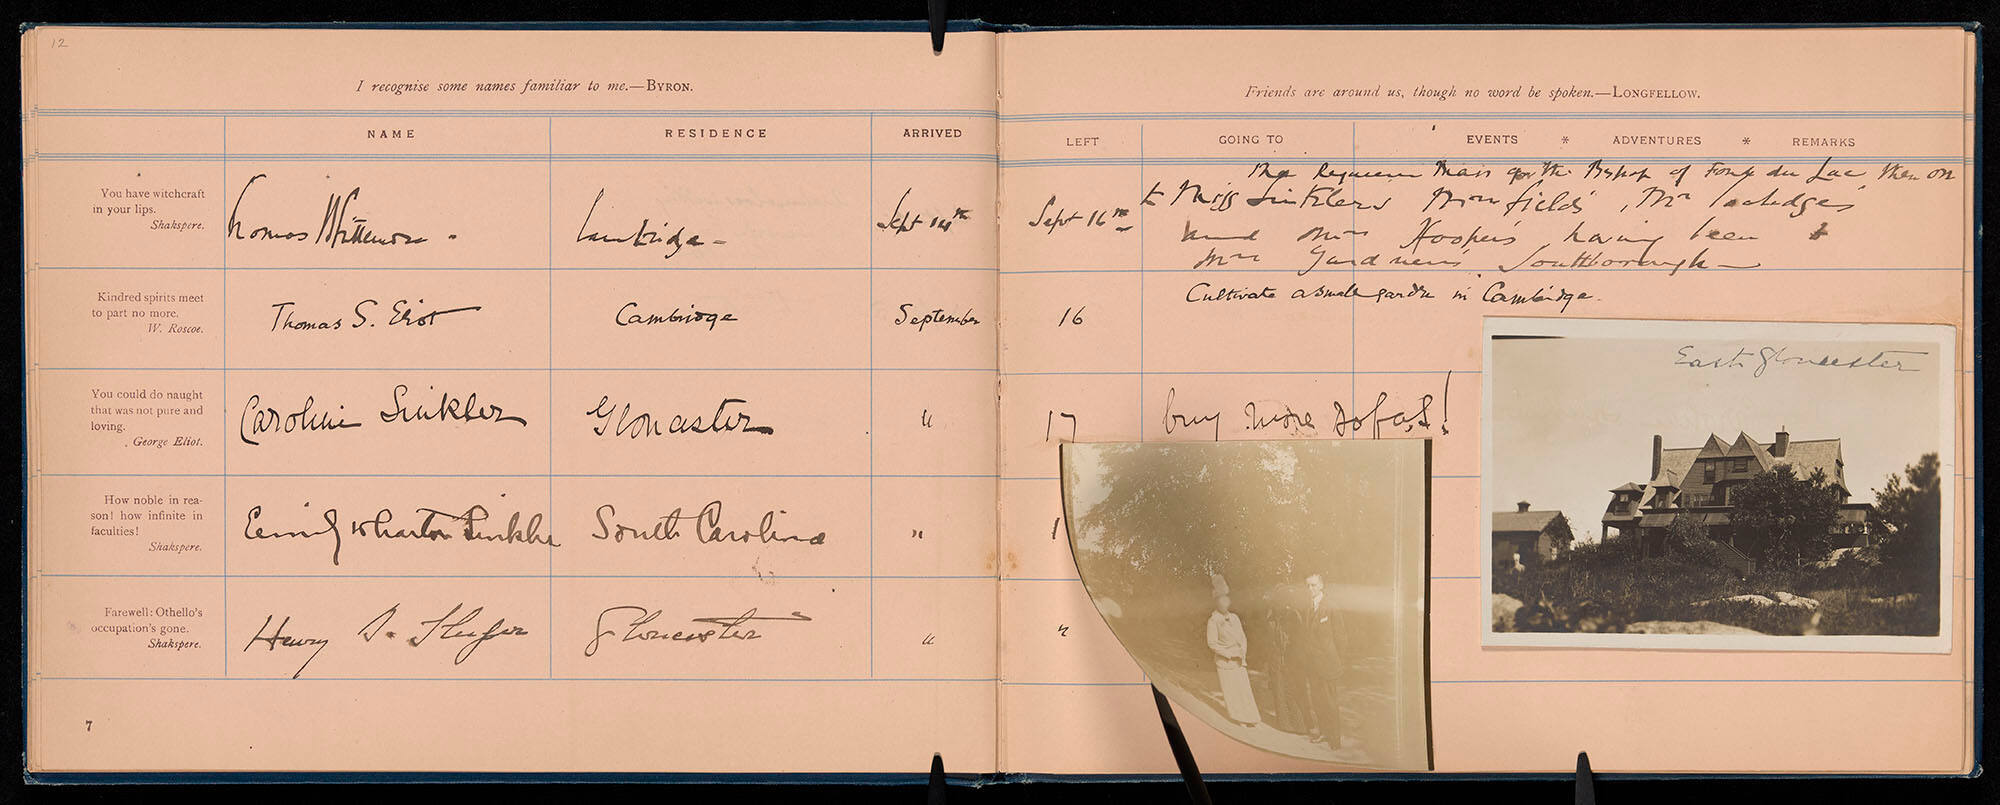 12
I recognise some names familiar to me.—BYRON.
NAME RESIDENCE ARRIVED
You have witchcraft
in your lips.
Shakspere.
Thomas Whittemore. Cambridge— Sept 14th
Kindred spirits meet
to part no more.
W. Roscoe.
Thomas S. Eliot Cambridge September
You could do naught
that was not pure and
loving.
George Eliot.
Caroline Sinkler Gloucester "
How noble in rea-
son! how infinite in
faculties!
Shakspere.
Emily Wharton Sinkler South Carolina "
Farewell: Othello's
occupation's gone.
Shakspere.
Henry D. Sleeper Gloucester "
7
Friends are around us, though no word be spoken.—LONGFELLOW.
LEFT GOING TO EVENTS * ADVENTURES * REMARKS
The Requiem Mass for the Bishop of Fond du Lac then on
Sept 16th to Miss Sinkler's Mr Loeledge's
and Mrs Hooper's having been to
Mrs Gardner's Southborough—
16 Cultivate a small garden in Cambridge.
17 buy more sofas!
1
"
East Gloucester